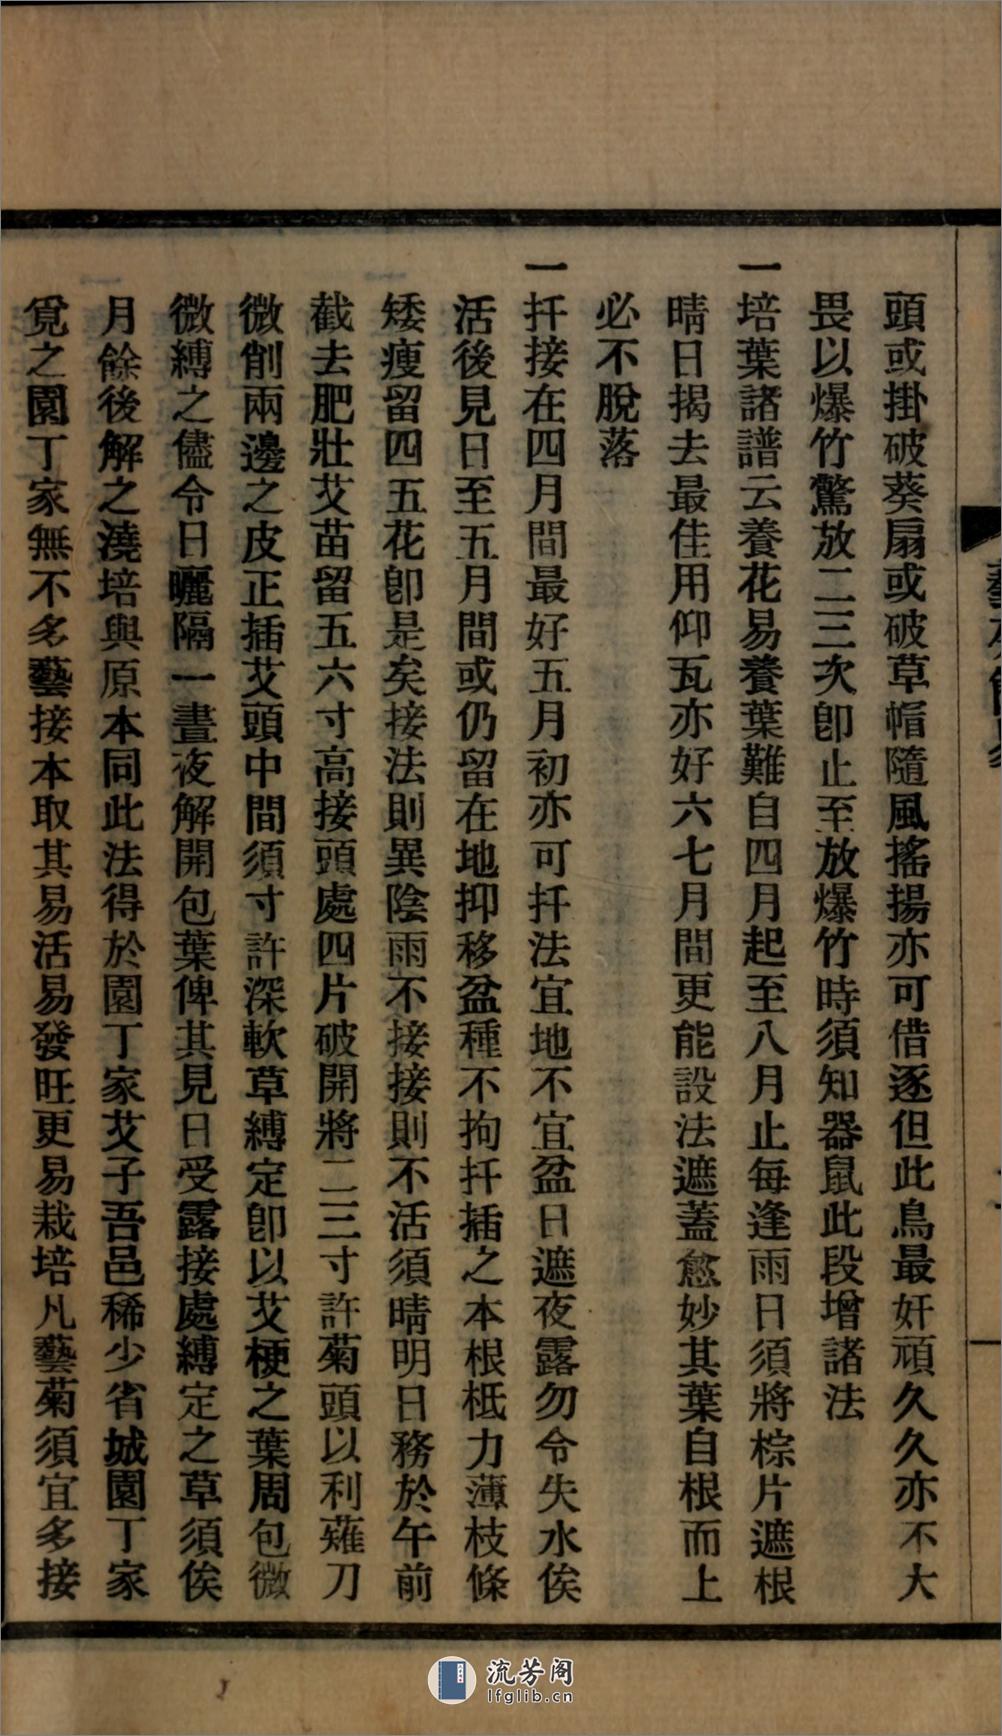 頭或掛破葵扇或破草帽隨風搖揚亦可借逐但此鳥最奸頑久久亦不大
畏以爆竹驚放二三次卽止至放爆竹時須知器鼠此段增諸法
一培葉諸譜云養花易養葉難自四月起至八月止每逢雨日須將棕片遮根
晴日揭去最佳用仰瓦亦好六七月間更能設法遮蓋愈妙其葉自根而上
必不脫落
一扦接在四月間最好五月初亦可扦法宜地不宜盆日遮夜露勿令失水俟
活後見日至五月間或仍留在地抑移盆種不拘扦插之本根柢力薄枝條
矮瘦留四五花卽是矣接法則異陰雨不接接則不活須晴明日務於午前
截去肥壯艾苗留五六寸高接頭處四片破開將二三寸許菊頭以利薙刀
微削兩邊之皮正插艾頭中間須寸許深軟草縛定卽以艾梗之葉周包微
微縛之儘令日曬隔一晝夜解開包葉俾其見日受露接處縛定之草須俟
月餘後解之澆培與原本同此法得於園丁家艾子吾邑稀少省城園丁家
覓之園丁家無不多藝接本取其易活易發旺更易栽培凡藝菊須宜多接
流芳阁
lfglib.cn